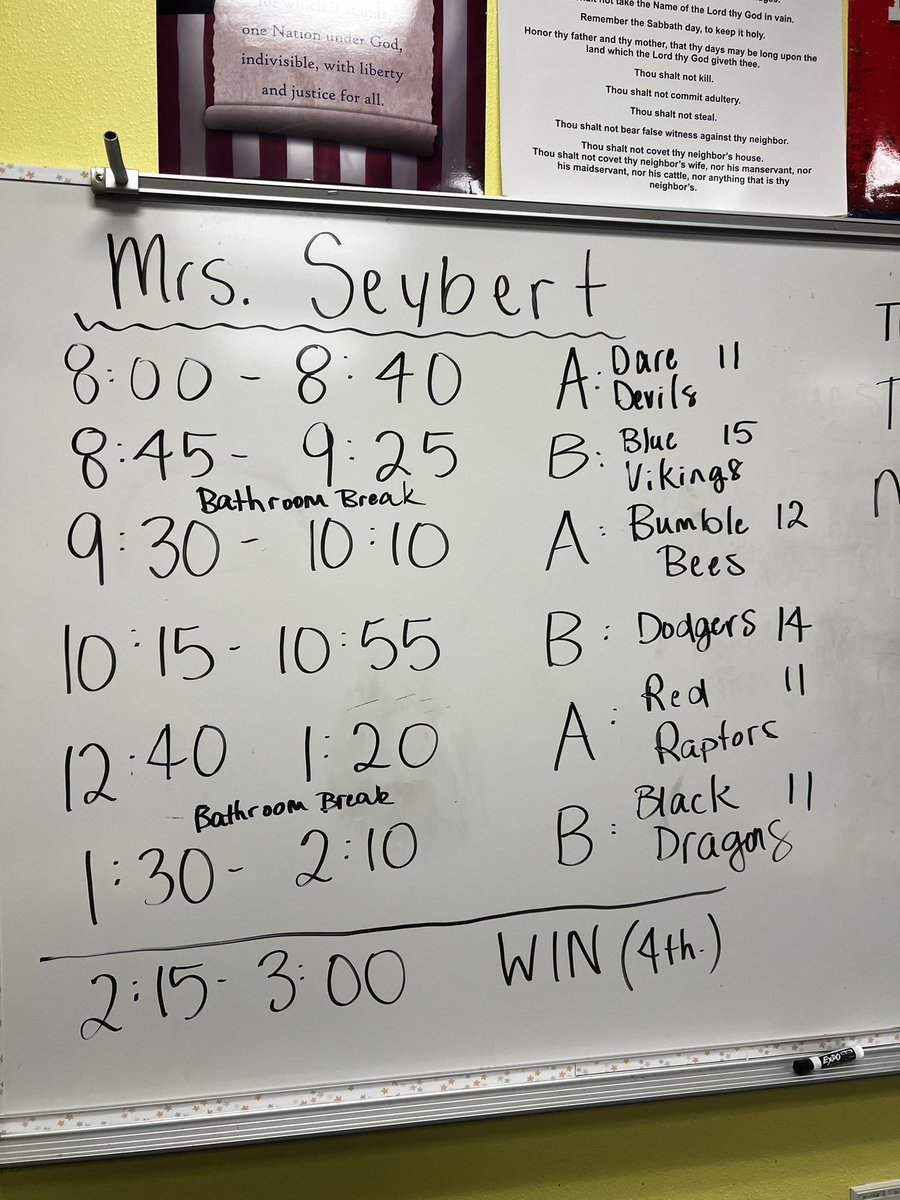 for which it stands,
one Nation under God,
indivisible, with liberty
and justice for all.
not take the Name of the Lord thy God in vain.
Remember the Sabbath day, to keep it holy.
Honor thy father and thy mother, that thy days may be long upon the
land which the Lord thy God giveth thee.
Thou shalt not kill.
Thou shalt not commit adultery.
Thou shalt not steal.
Thou shalt not bear false witness against thy neighbor.
Thou shalt not covet thy neighbor's house.
Thou shalt not covet thy neighbor's wife, nor his manservant, nor
his maidservant, nor his cattle, nor anything that is thy
neighbor's.
Mrs. Seybert
8:00 - 8:40 A: Dare 11
Devils
8:45 - 9:25 B: Blue 15
Vikings
Bathroom Break
9:30 - 10:10 A: Bumble 12
Bees
10:15 - 10:55 B: Dodgers 14
12:40 1:20 A: Red 11
Raptors
Bathroom Break
1:30 - 2:10 B: Black 11
Dragons
2:15 - 3:00 WIN (4th.)
EXPO